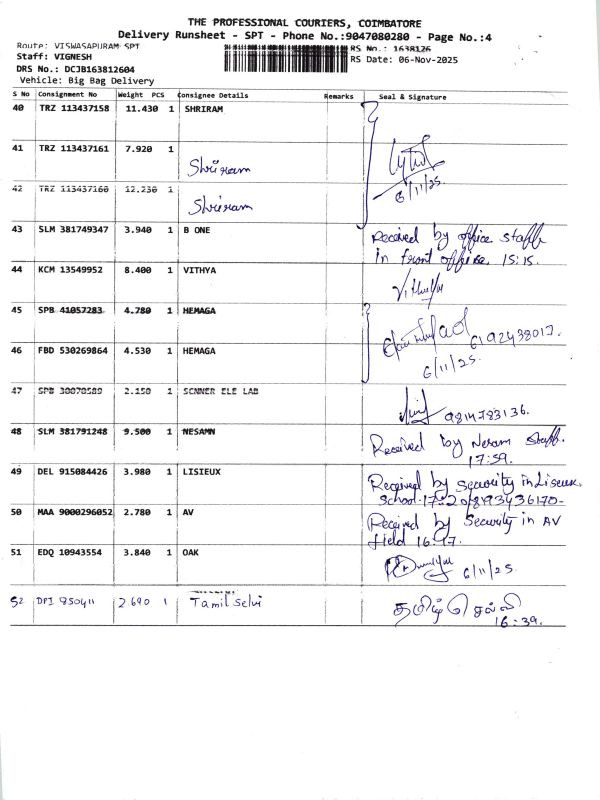 THE PROFESSIONAL COURIERS, COIMBATORE
Delivery Runsheet - SPT - Phone No.:9047080280 - Page No.:4
Route: VISWASAPURAM SPT
RS No.: 1638126
Staff: VIGNESH
RS Date: 06-Nov-2025
DRS No.: DCJB163812604
Vehicle: Big Bag Delivery
S No Consignment No Weight PCS Consignee Details Remarks Seal & Signature
40 TRZ 113437158 11.430 1 SHRIRAM
41 TRZ 113437161 7.920 1
Shriram
6/11/25.
42 TRZ 113437160 12.230 1
Shriram
43 SLM 381749347 3.940 1 B ONE
Received by office staff
in front office. 15:15.
44 KCM 13549952 8.400 1 VITHYA
45 SPB 41057283 4.780 1 HEMAGA
46 FBD 530269864 4.530 1 HEMAGA
6/11/25.
47 SPB 30070589 2.150 1 SCNNER ELE LAB
9814783136.
48 SLM 381791248 9.500 1 NESAMN
Received by Nesam staff.
17:59.
49 DEL 915084426 3.980 1 LISIEUX
Received by security in Liseux
School.17:20/8193436170-
50 MAA 9000296052 2.780 1 AV
Received by Security in AV
field 16:17.
51 EDQ 10943554 3.840 1 OAK
6/11/25.
52 DPI 850411 2.690 1 Tamil selvi
தமிழ் செல்வி
16:39.